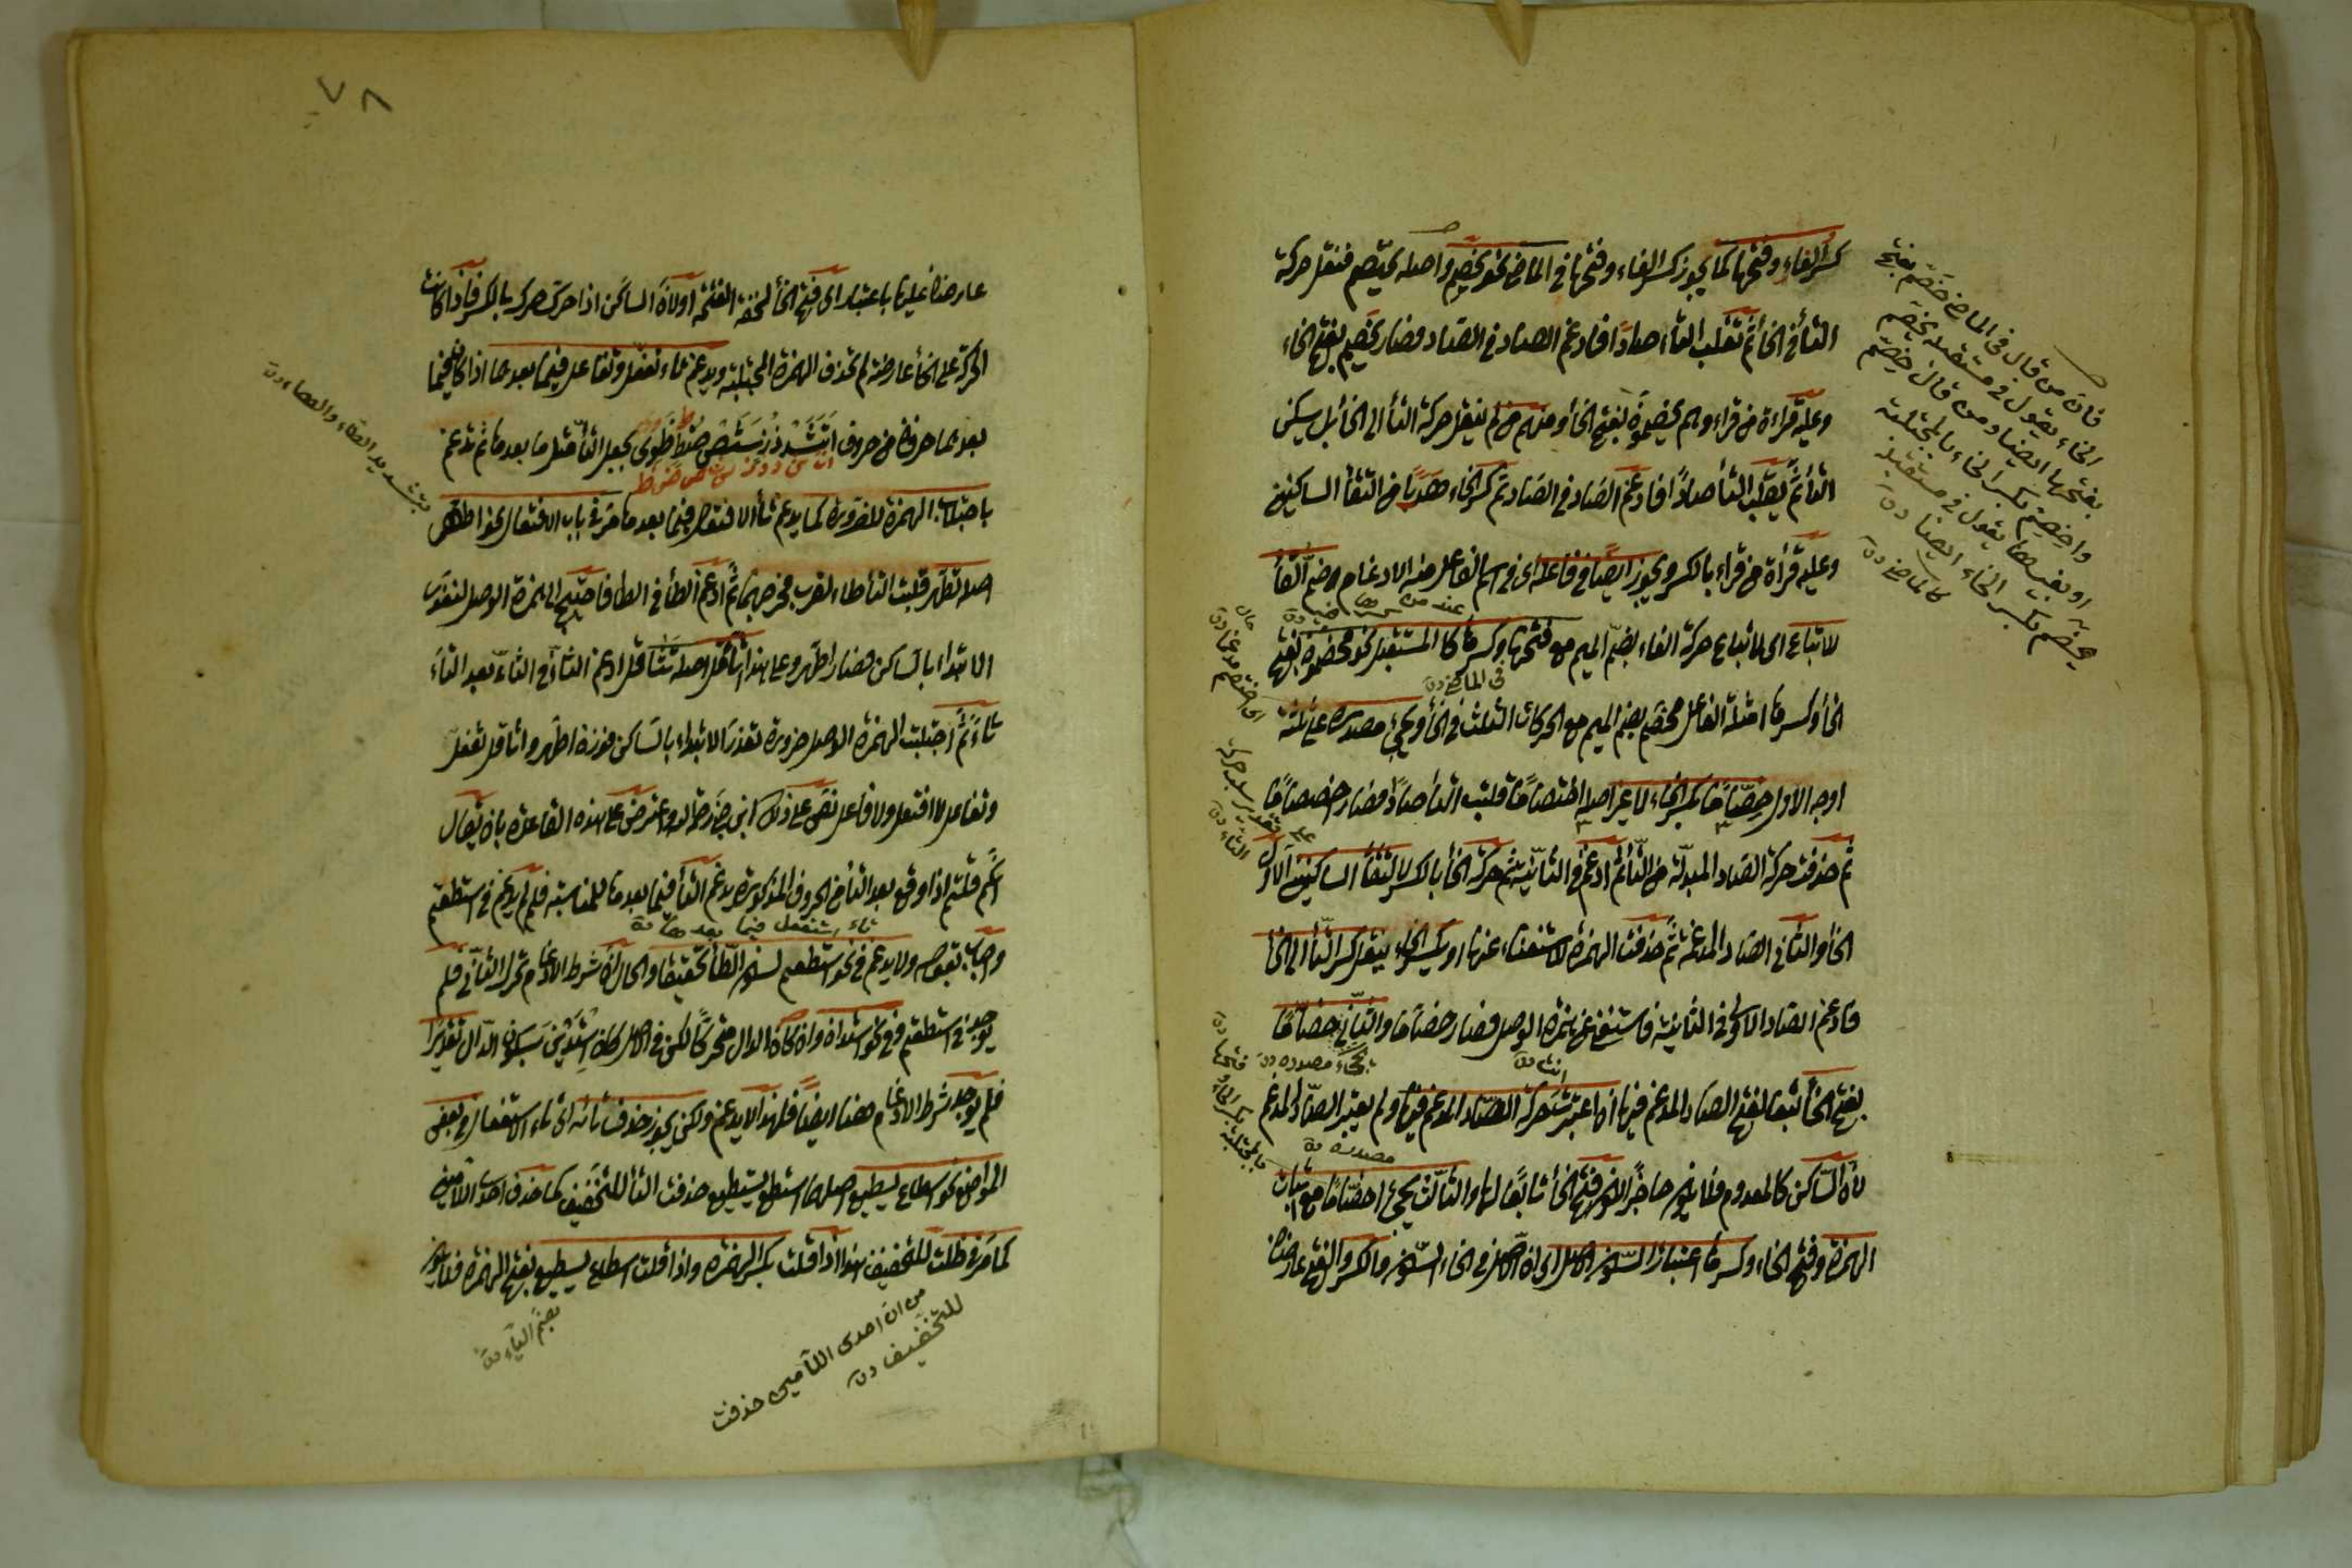 كسر الفاء وفتحها كما يجوز كسر الفاء وفتحها في الماضي نحو يخصم واصله يختصم فنقل حركة
التاء في الخاء ثم تقلب التاء صادا فادغم الصاد في الصاد فصار يخصم بفتح الخاء
وعليه قراءة من قراء وهم يخصمون بفتح الخاء ومنهم من لم ينقل حركة التاء الى الخاء بل يسكن
التاء ثم يقلب التاء صادا فادغم الصاد في الصاد ثم كسر الخاء هربا من التقاء الساكنين
وعليه قراءة من قراء بالكسر ويجوز ايضا في فاعله اى في اسم الفاعل منه الادغام وضم الفاء
للاتباع اى لاتباع حركة الفاء بضم الميم مع فتحها وكسرها كالمستقبل نحو مخصمون بفتح
الخاء وكسرها امثلة الفاعل مخصم بضم الميم مع الحركات الثلث في الخاء ويجئ مصدره على ثلثة
اوجه الاول خصاما بكسر الخاء لا غير اصله اختصاما قلبت التاء صادا فصار خصصاما
ثم حذفت حركة الصاد المبدلة من التاء ثم ادغم في الثانية ثم حركة الخاء بالكسر لالتقاء الساكنين الاول
الخاء والثاني الصاد المدغمة ثم حذفت الهمزة للاستغناء عنها او بكسر الخاء بنقل كسر التاء الى الخاء
فادغم الصاد الاولى في الثانية فاستغنى عن همزة الوصل فصار خصاما والثاني خصاما
بفتح الخاء تبعا لفتح الصاد المدغم فيها اذا اعتبرت حركة الصاد المدغم فيها ولم يعتبر الصاد المدغم
لان الساكن كالمعدوم فلا يكون حاجزا لكون فتح الخاء تابعا لها والثالث يجئ اخصاما مع اثبات
الهمزة وفتح الخاء وكسرها اعتبارا لسكون الاصل اى لان الاصل في الخاء السكون والكسر والفتح عارضان
فان من قال في الماضى خصم بفتح
الخاء يقول في مستقبله يخصم
بفتحها ايضا ومن قال خصم
واخصم بكسر الخاء بالمجتلبة
او بغيرها يقول في مستقبله
يخصم بكسر الخاء ايضا
كالماضى
عند من كسرها
في الماضى
يجئ مصدره
مصدره
٧٨
عارضان عليها باعتبار اى فتح الخاء لخفة الفتحة اولان الساكن اذا حرك حرك بالكسر فاذا كانت
الحركة على الخاء عارضة لم تحذف الهمزة المجتلبة ويدغم تاء تفعل وتفاعل فيما بعدها اذا كان فيما
بعدهما حرف من حروف اتثدذزسشصضطظوى بجعل التاء مثل ما بعدها ثم تدغم
باجتلاب الهمزة للضرورة كما يدغم تاء الافتعال فيما بعدها مر في باب الافتعال نحو اطهر
اصله تطهر قلبت التاء طاء لقرب مخرجهما ثم ادغم الطاء في الطاء فاحتيج الى همزة الوصل لتعذر
الابتداء بالساكن فصار اطهر وعلى هذا اثاقل اصله تثاقل ادغم التاء في الثاء بعد التاء
ثاء ثم اجتلبت الهمزة الوصل ضرورة تعذر الابتداء بالساكن فوزنه اطهر واثاقل تفعل
وتفاعل لا افتعل ولا فاعل نص على ذلك ابن حاجب رحمه الله واعترض على هذه القاعدة بان يقال
انكم قلتم اذا وقع بعد التاء من الحروف المذكورة يدغم التاء فيما بعدها للمناسبة فلم لم يدغم في استطعم
واجاب بقوله ولا يدغم في نحو استطعم لسكون الطاء تحقيقا والحال ان شرط الادغام تحرك الثاني فلم
يوجد في استطعم وفي نحو استدان وان كان الدال متحركا لكن في الاصل كان استدين بسكون الدال تقديرا
فلم يوجد شرط الادغام هنا ايضا فلهذا لا يدغم ولكن يجوز حذف تائه اى تاء الاستفعال في بعض
المواضع نحو اسطاع يسطيع اصلهما استطاع يستطيع حذفت التاء للتخفيف كما حذف احدى اللامين
كما مر في ظلت للتخفيف هذا اذا قلت بكسر الهمزة واذا قلت اسطاع يسطيع بفتح الهمزة فلا يكون
بتشديد الطاء والهاء
تاء استفعل فيما بعدها
من ان احدى اللامين حذفت
للتخفيف
بضم الياء